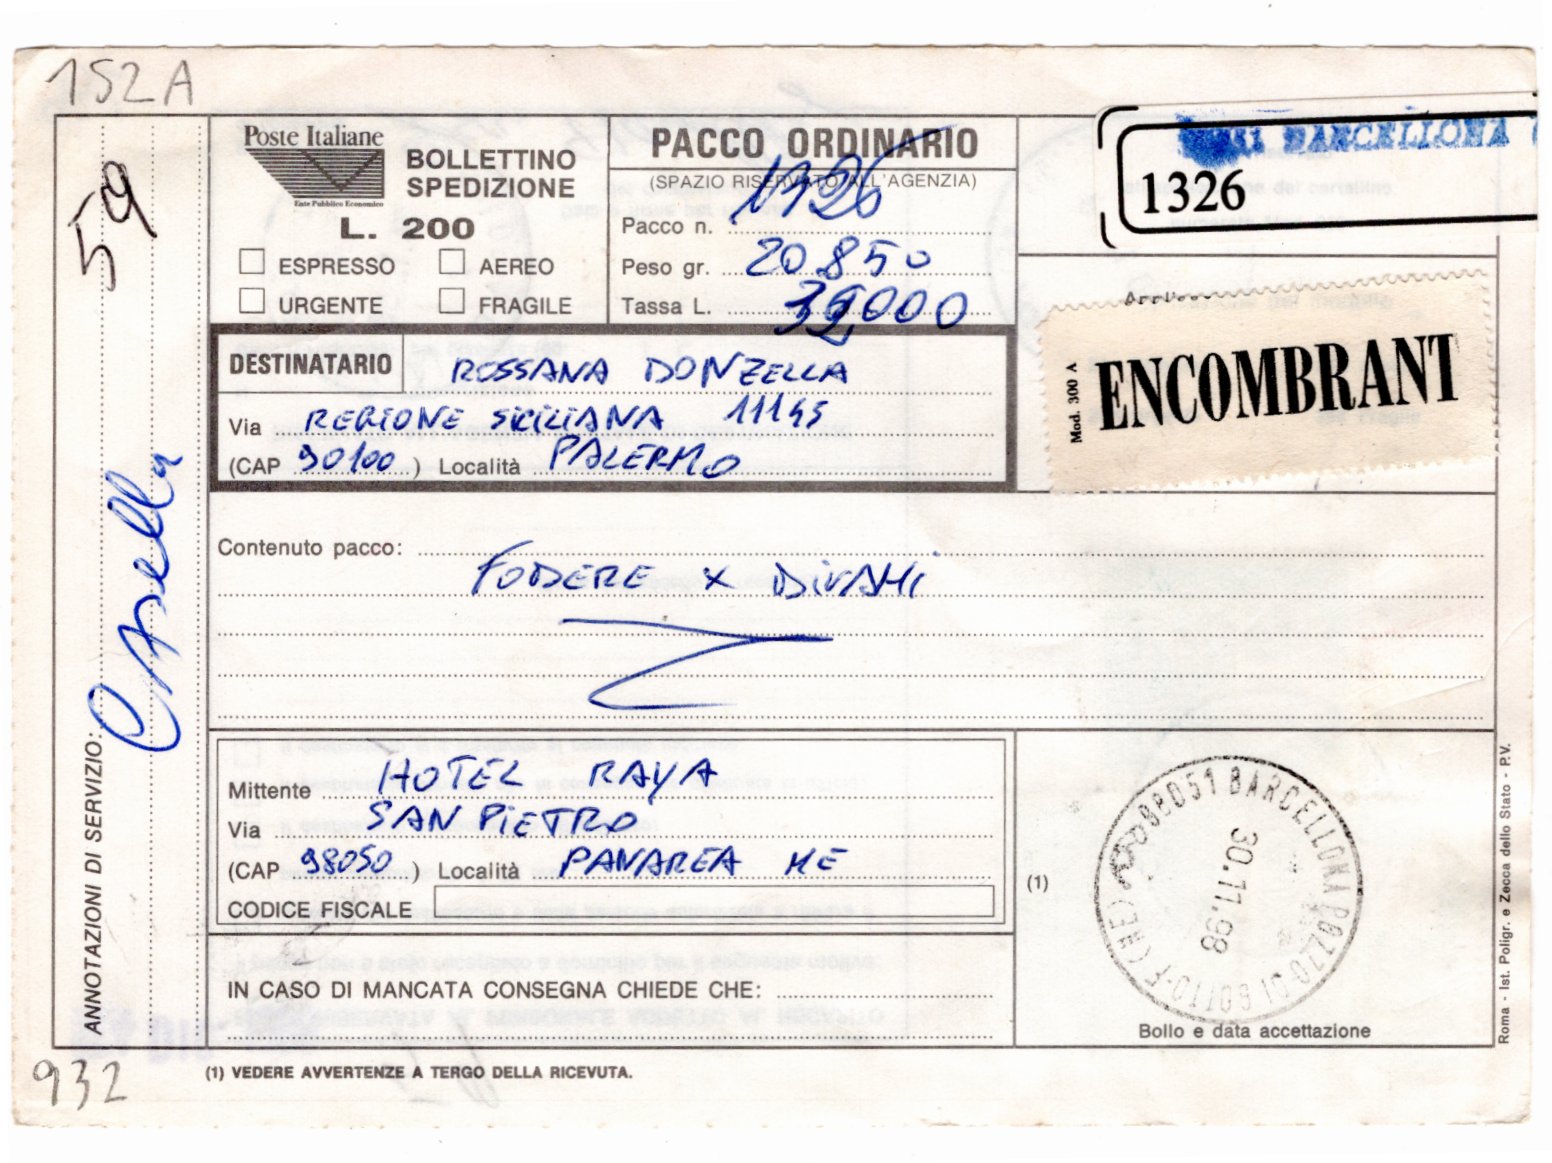 152A
59
Casella
ANNOTAZIONI DI SERVIZIO:
Poste Italiane
Ente Pubblico Economico
BOLLETTINO
SPEDIZIONE
L. 200
ESPRESSO
AEREO
URGENTE
FRAGILE
PACCO ORDINARIO
(SPAZIO RISERVATO ALL'AGENZIA)
Pacco n. 1326
Peso gr. 20850
Tassa L. 39000
BARCELLONA
1326
Mod. 300 A
ENCOMBRANT
DESTINATARIO ROSSANA DONZELLA
Via REGIONE SICILIANA 11145
(CAP 90100) Località PALERMO
Contenuto pacco:
FODERE x DIVANI
Mittente HOTEL RAYA
Via SAN PIETRO
(CAP 98050) Località PANAREA ME
CODICE FISCALE
IN CASO DI MANCATA CONSEGNA CHIEDE CHE:
(1)
98051 BARCELLONA POZZO DI GOTTO-F (ME)
30.11.98
Bollo e data accettazione
Roma - Ist. Poligr. e Zecca dello Stato - P.V.
932
(1) VEDERE AVVERTENZE A TERGO DELLA RICEVUTA.